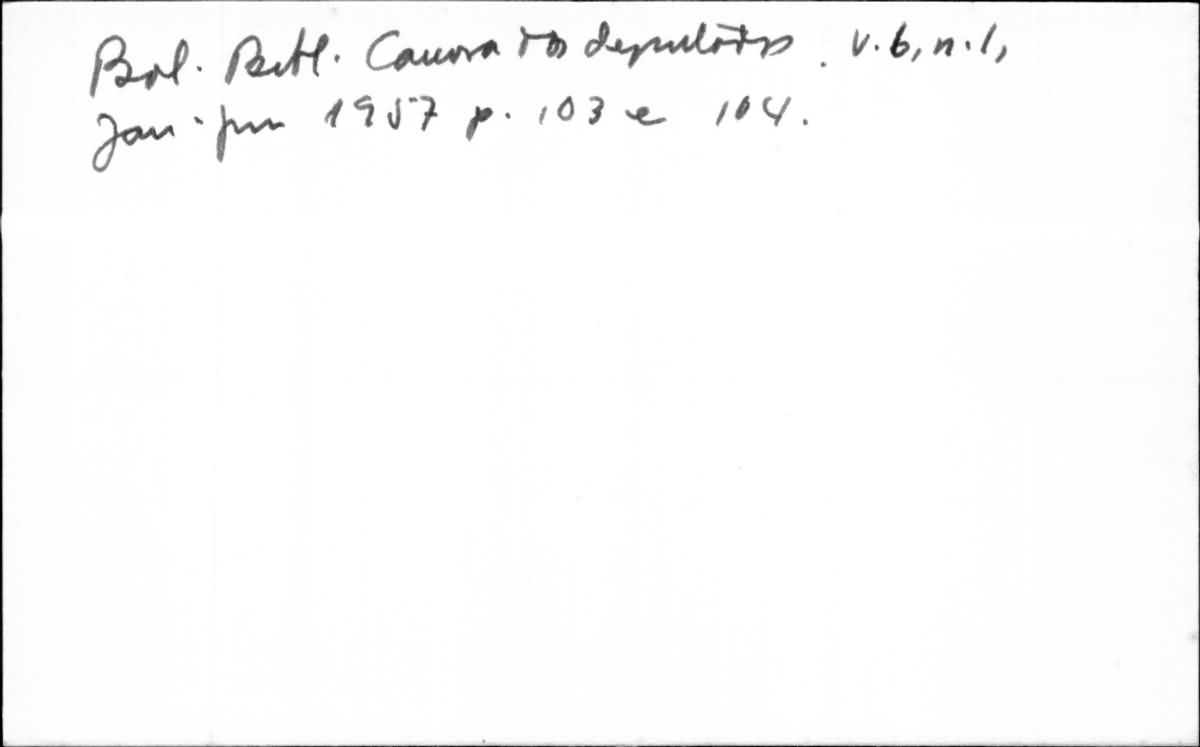 Bol. Bibl. Camara dos deputados. v.6, n.1,
Jan-jun 1957 p. 103 e 104.